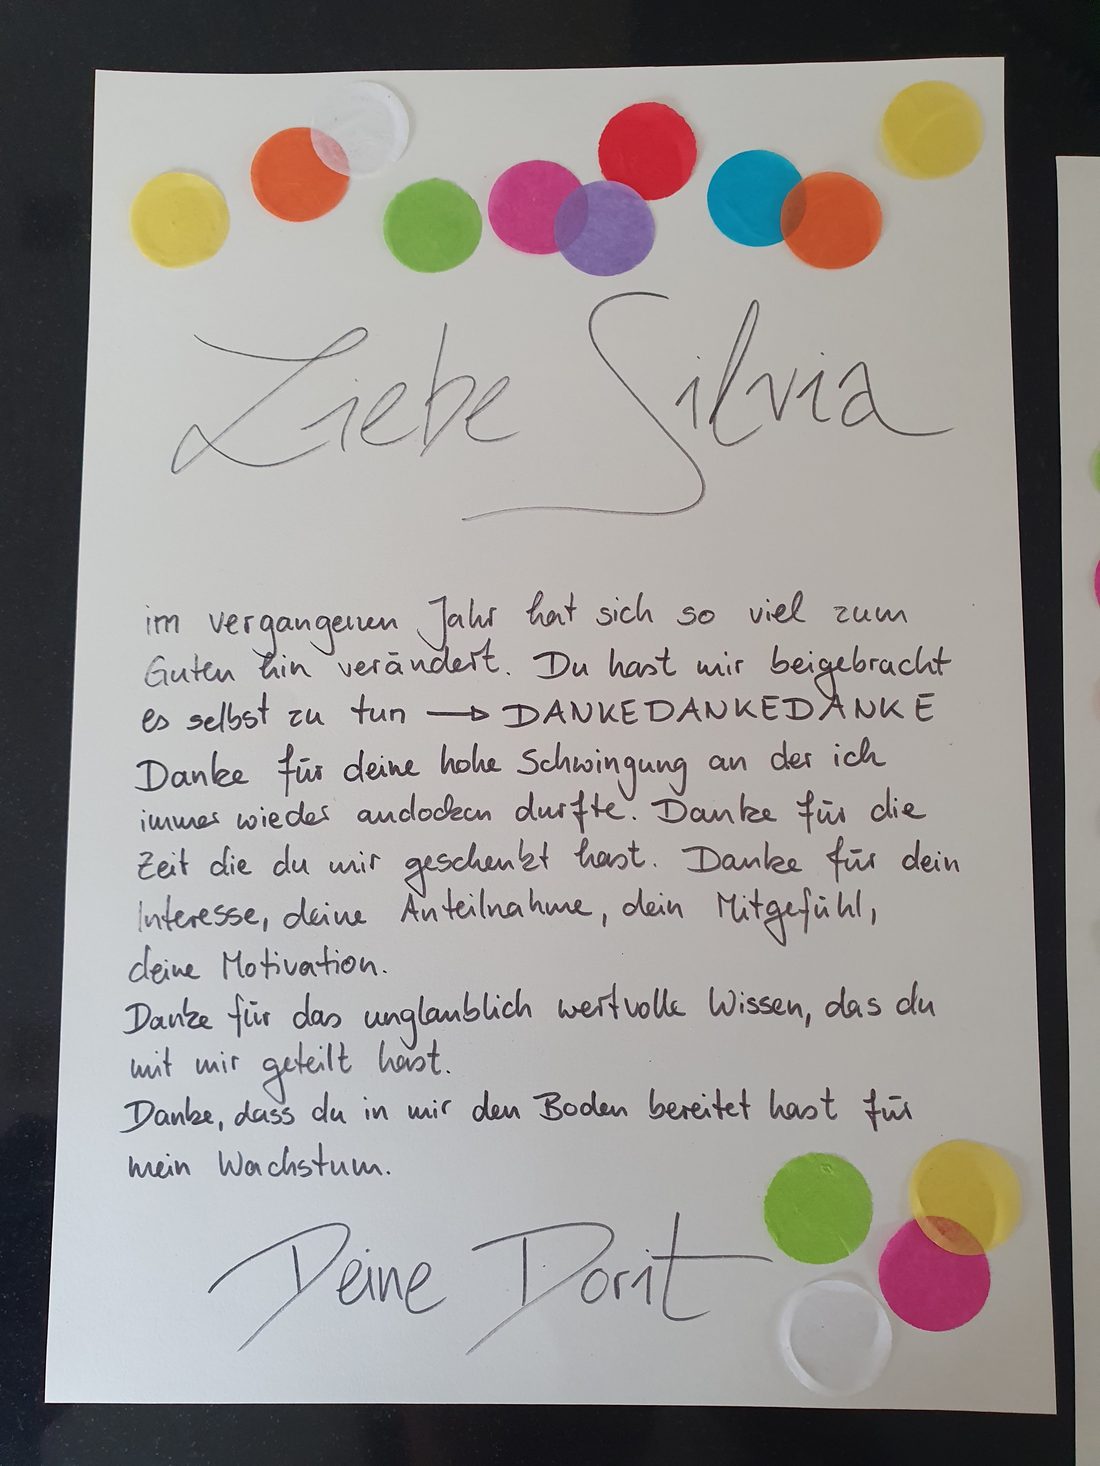 Liebe Silvia
im vergangenen Jahr hat sich so viel zum
Guten hin verändert. Du hast mir beigebracht
es selbst zu tun → DANKEDANKEDANKE
Danke für deine hohe Schwingung an der ich
immer wieder andocken durfte. Danke für die
Zeit die du mir geschenkt hast. Danke für dein
Interesse, deine Anteilnahme, dein Mitgefühl,
deine Motivation.
Danke für das unglaublich wertvolle Wissen, das du
mit mir geteilt hast.
Danke, dass du in mir den Boden bereitet hast für
mein Wachstum.
Deine Dorit